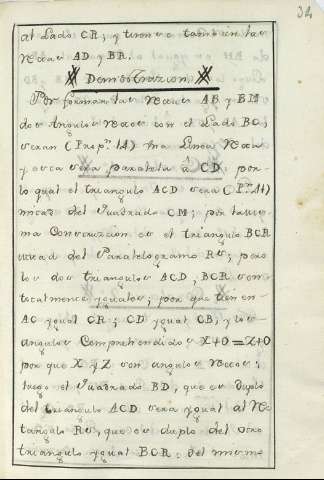 34
al Lado CR; y tirense tambien las
rectas AD y BR.
Demostrazion
Por formar las rectas AB y BM
dos angulos rectos con el Lado BC;
seran (Prop.n 14) una Linea recta
y esta sera paralela á CD: por
lo qual el triangulo ACD sera (P.n 41)
mitad del Quadrado CM; por la mis-
ma Construzion es el triangulo BCR
mitad del Paralelogramo Rs; pero
los dos triangulos ACD, BCR son
totalmente yguales; por que tienen
AC ygual CR; CD ygual CB; y los
angulos Comprehendidos X+O=Z+O
por que X y Z son angulos rectos;
luego el Quadrado BD, que es duplo
del triangulo ACD sera ygual al Rec-
tangulo Rs, que es duplo del otro
triangulo ygual BCR: del mismo